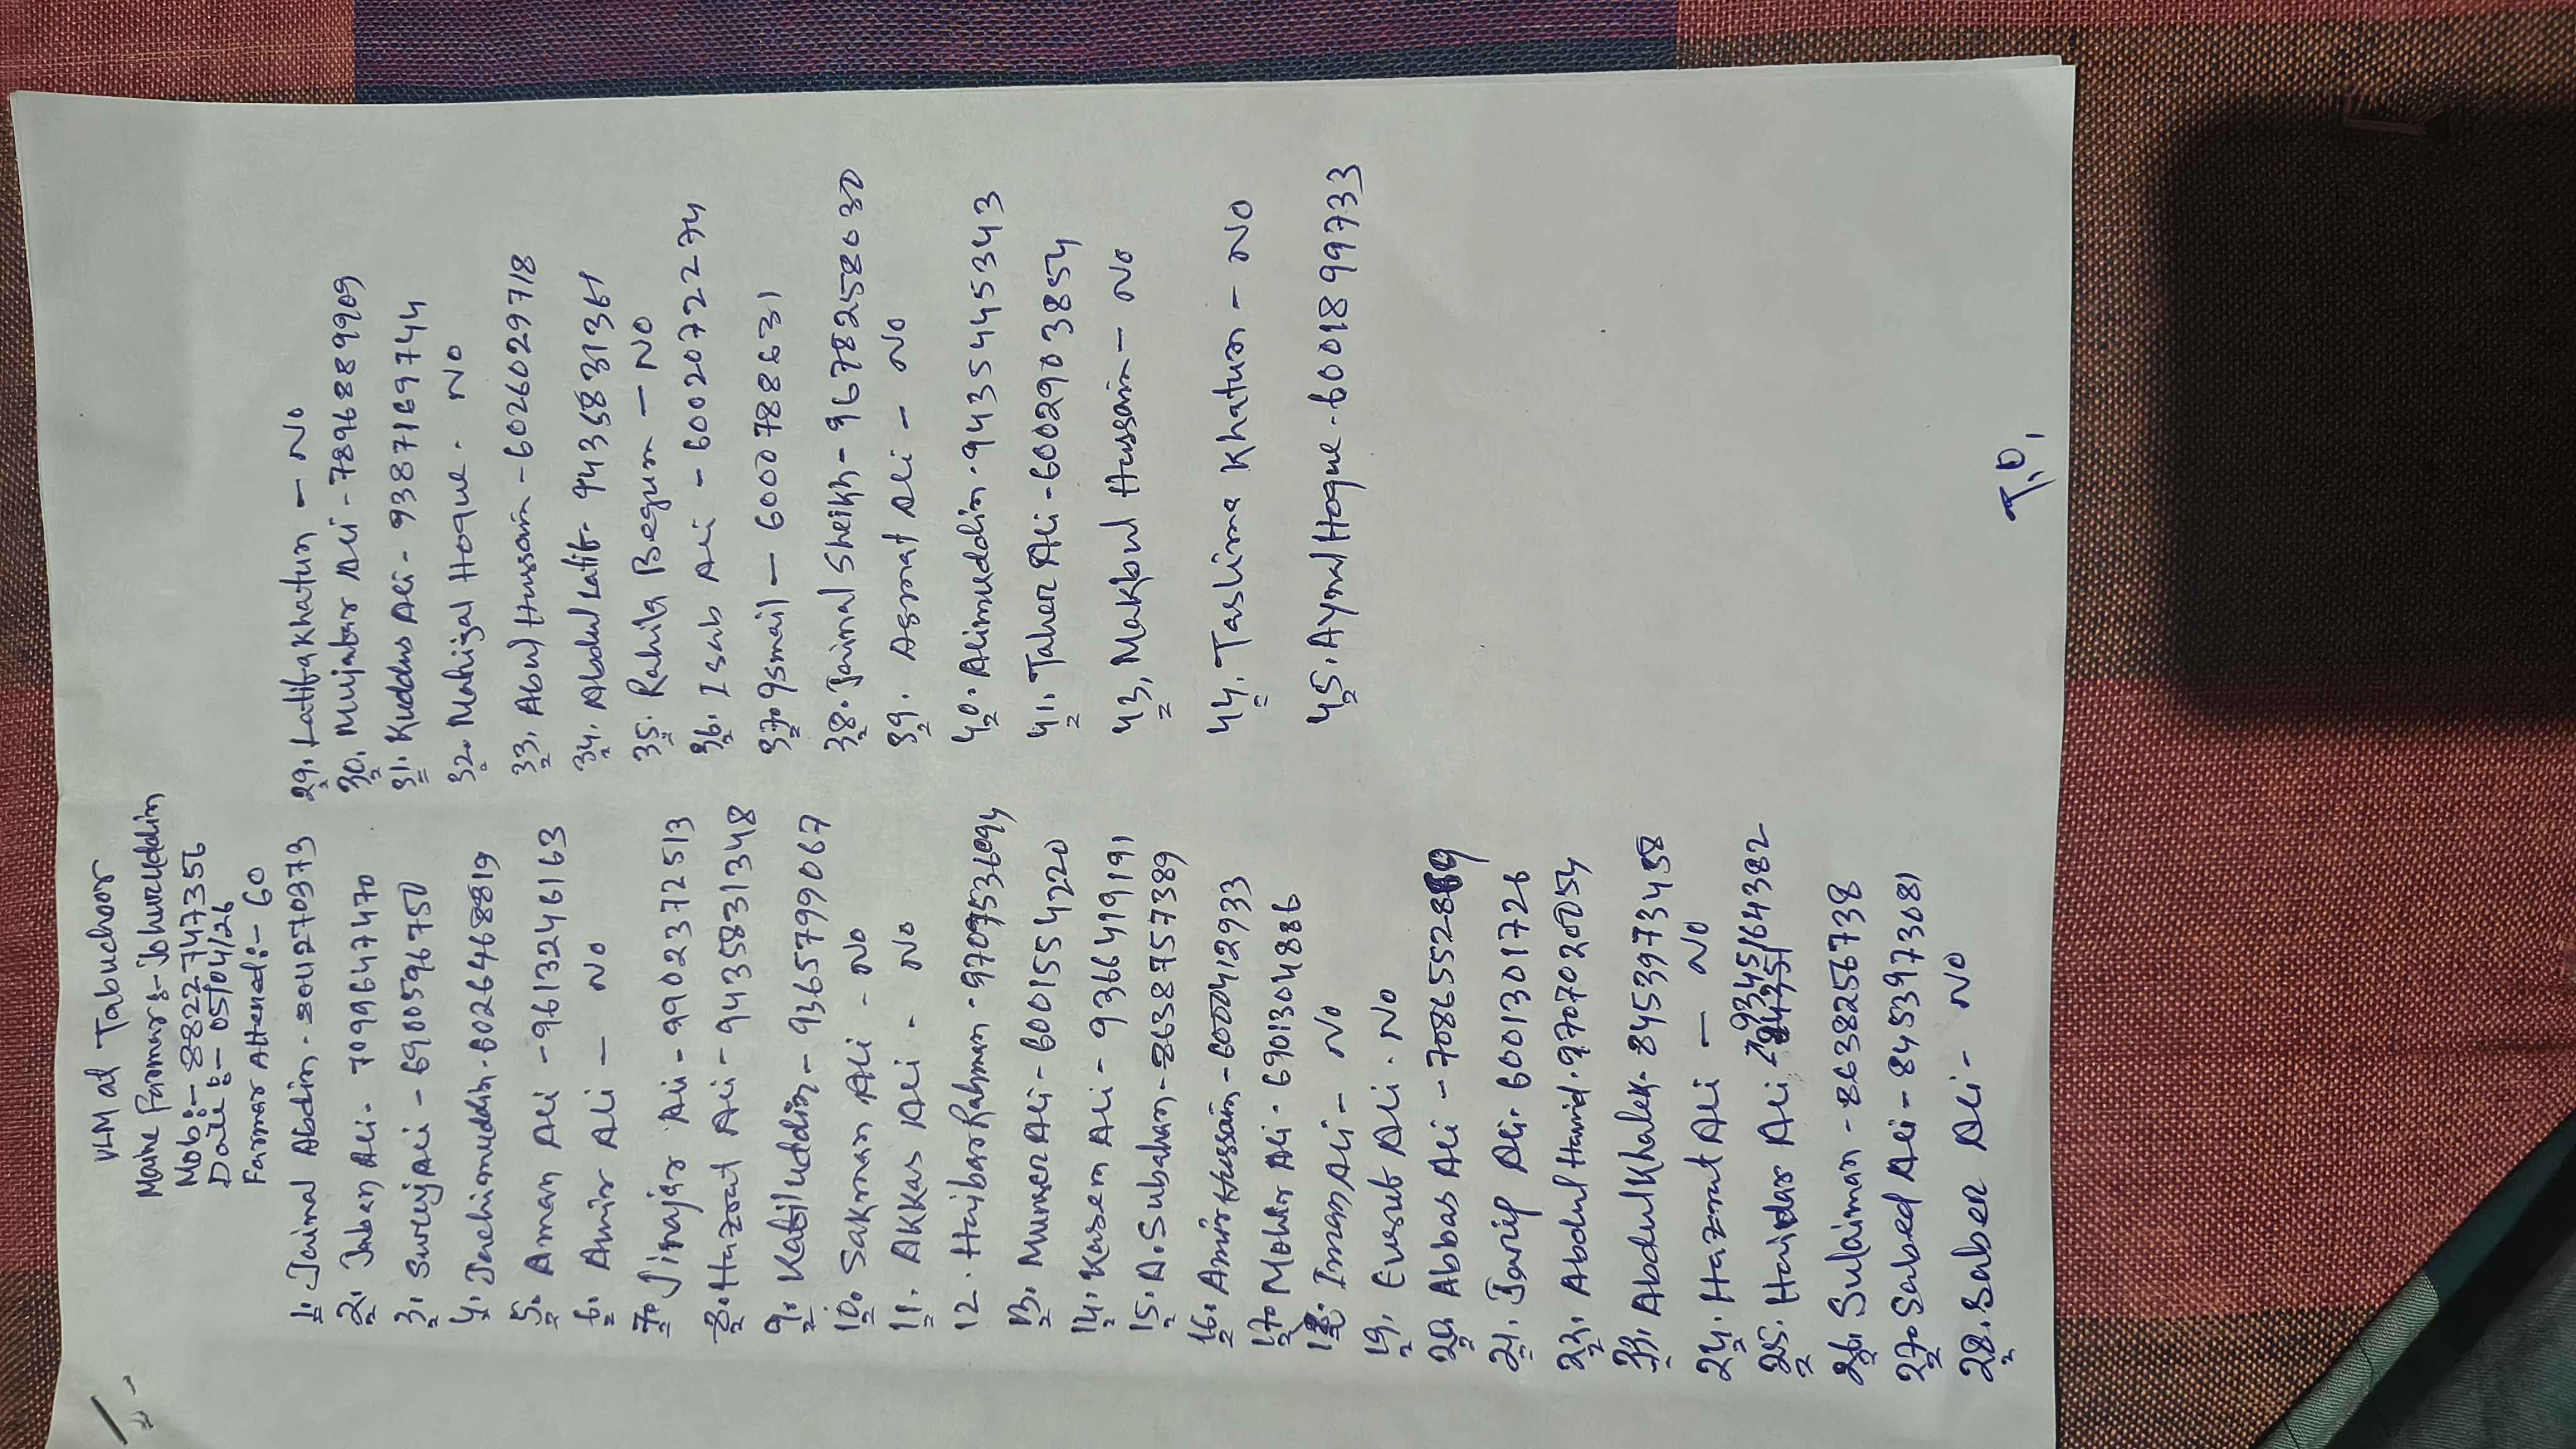 1.
VLM at Tabuchoor
Maine Farmers:- Johuruddin
Mob:- 8822747356
Date:- 05/04/26
Farmar Attened:- 60
1. Jainal Abdin - 8011270373
2. Jaban Ali - 7099647470
3. Surujali - 6900596750
4. Jachimuddin - 6026468819
5. Aman Ali - 9613246163
6. Amir Ali - No
7. Jinajar Ali - 9902372513
8. Hazrat Ali - 9435831348
9. Kabiluddin - 9365799067
10. Sakman Ali - No
11. Akkas Ali - No
12. Haibar Rahman - 9709536094
13. Munser Ali - 6001554220
14. Kasem Ali - 9366419191
15. A. Subahan - 8638757389
16. Amir Hussain - 6000412933
17. Mohir Ali - 6901304886
18. Imam Ali - No
19. Eusub Ali - No
20. Abbas Ali - 7086552889
21. Jarip Ali - 6001301726
23. Abdul Hamid - 9707020054
23. Abdul Khalek - 8453973458
24. Hazrat Ali - No
25. Haidar Ali 9345164382
26. Sulaiman - 8638256738
27. Sabed Ali - 8453973081
28. Saber Ali - No
29. Latifa Khatun - No
30. Mujabar Ali - 7896889909
31. Kuddus Ali - 9387169744
32. Mahijal Hoque - No
33. Abul Hussain - 6026029718
34. Abdul Latif - 9435831361
35. Rahila Begum - No
36. Isab Ali - 6002072274
37. Ismail - 6000788631
38. Jainal Sheikh - 9678258030
39. Asmat Ali - No
40. Alimuddin - 9435445343
41. Taher Ali - 6002903854
43. Makbul Hussain - No
44. Taslima Khatun - No
45. Aynal Hoque - 6001899733
T.O,